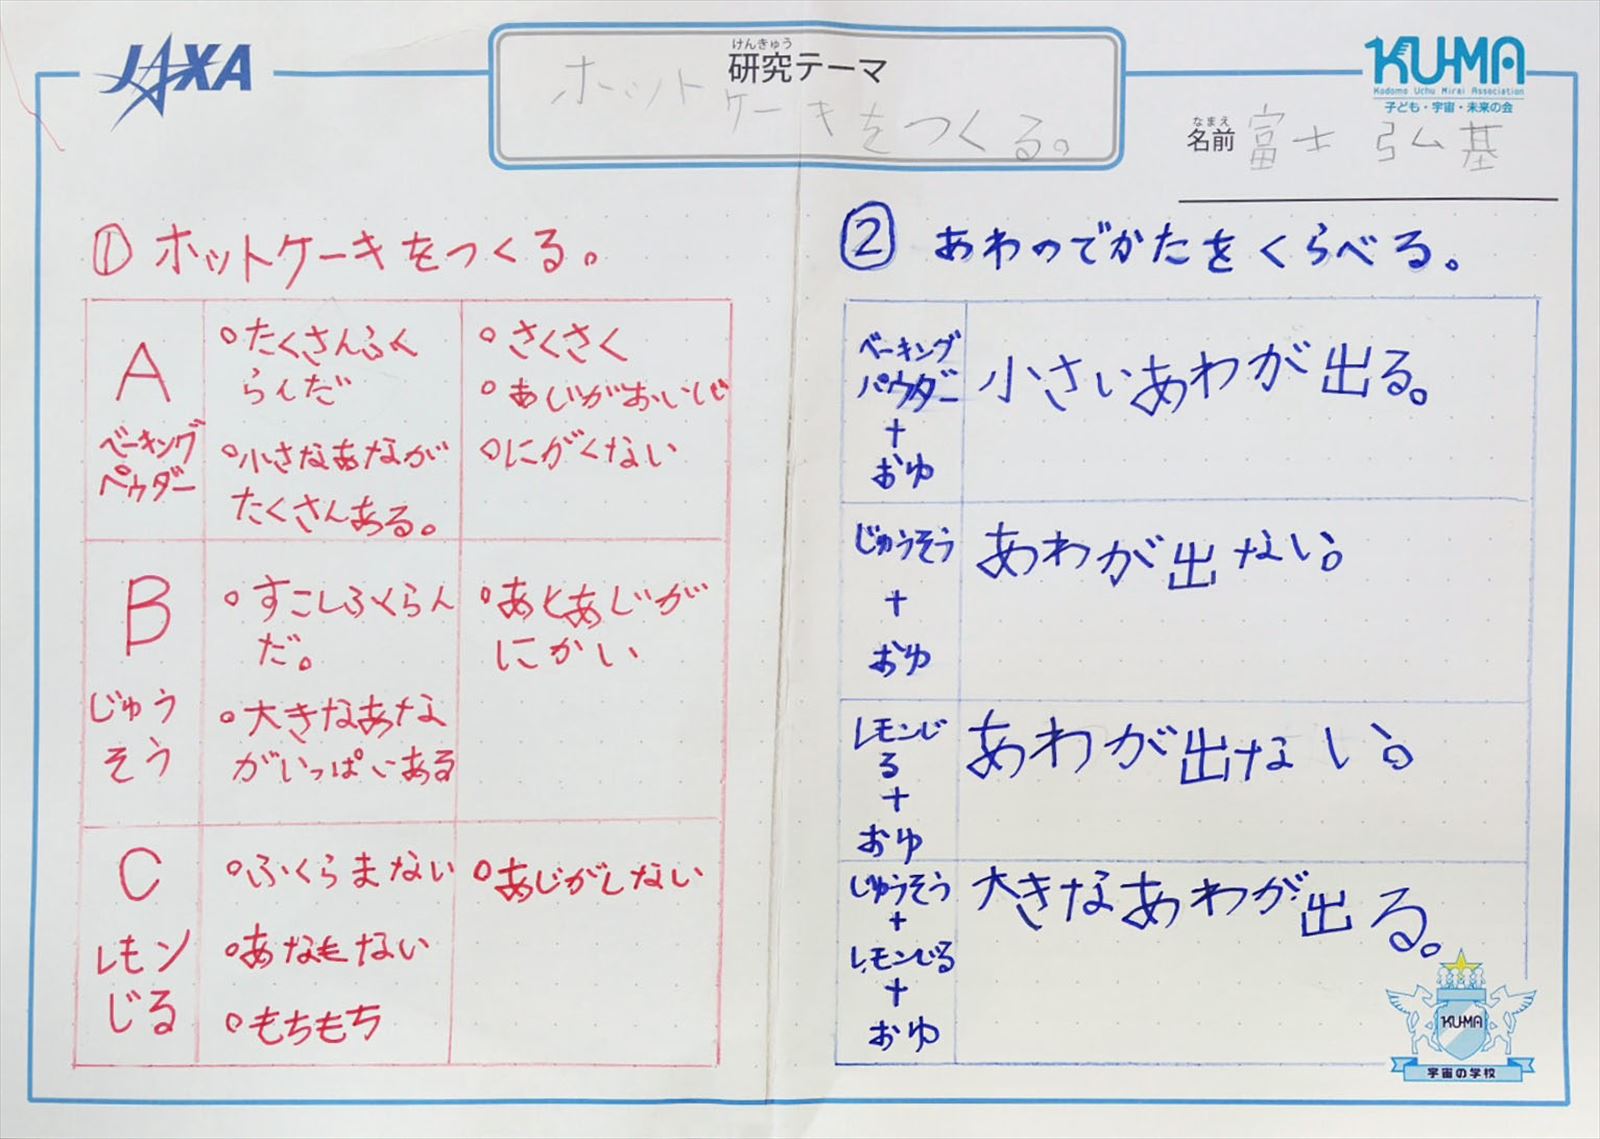 JAXA
けんきゅう
研究テーマ
ホット
ケーキをつくる。
KU-MA
Kodomo Uchu Mirai Association
子ども・宇宙・未来の会
なまえ
名前 富士 弘基
① ホットケーキをつくる。
A
ベーキング
ペウダー
・たくさんふく
らんだ
・小さなあなが
たくさんある。
・さくさく
・あじがおいしい
・にがくない
B
じゅう
そう
・すこしふくらん
だ。
・大きなあな
がいっぱいある
・あとあじが
にかい
C
レモン
じる
・ふくらまない
・あなもない
・もちもち
・あじがしない
② あわのでかたをくらべる。
ベーキング
パウダー
+
おゆ
小さいあわが出る。
じゅうそう
+
おゆ
あわが出ない。
レモンじ
る
+
おゆ
あわが出ない。
じゅうそう
+
レモンじる
+
おゆ
大きなあわが出る。
KU-MA
宇宙の学校